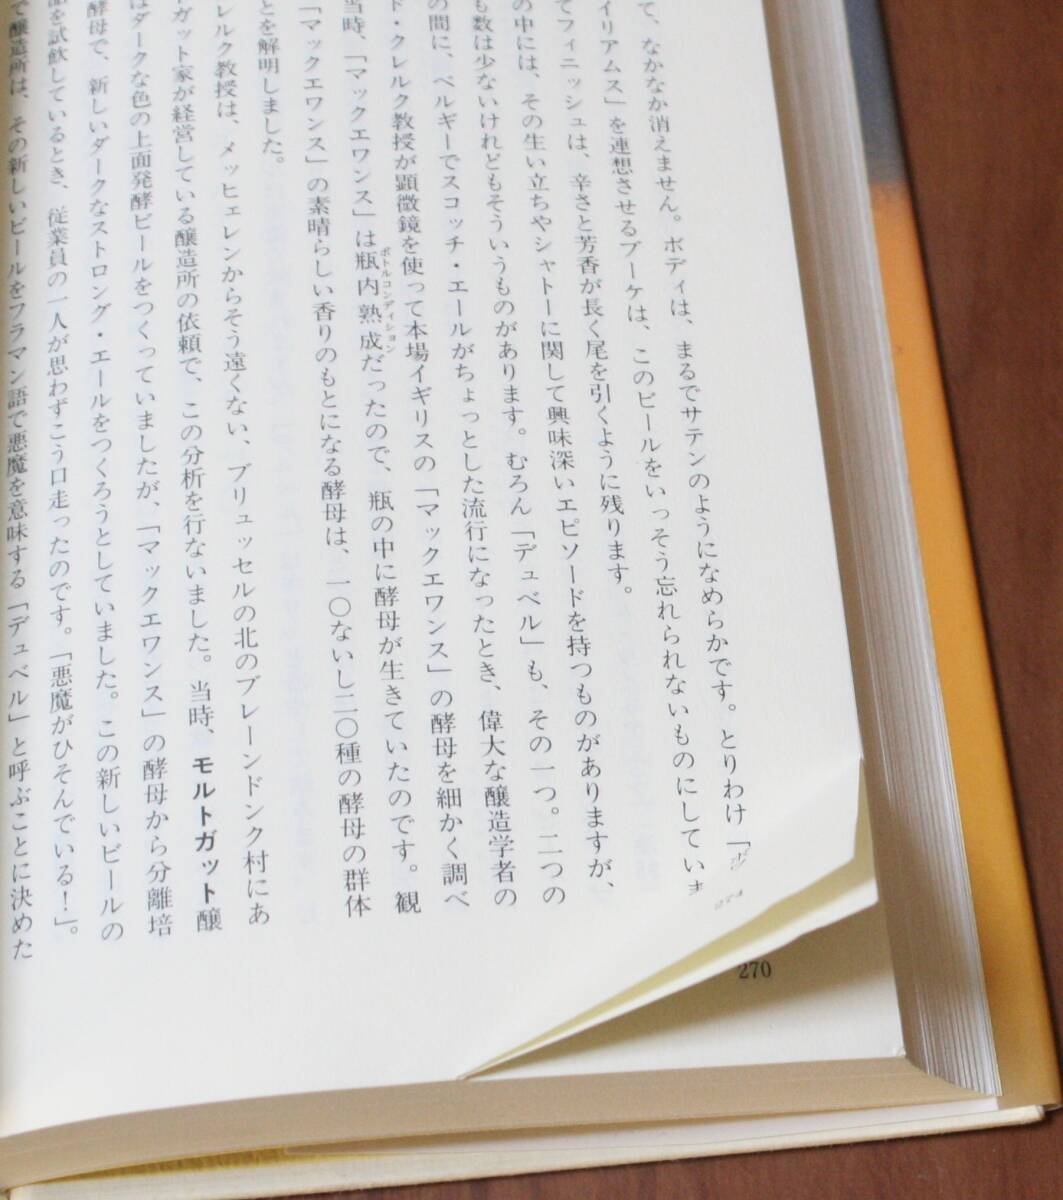 て、なかなか消えません。ボディは、まるでサテンのようになめらかです。とりわけ「ポ
イリアムス」を連想させるブーケは、このビールをいっそう忘れられないものにしていま
てフィニッシュは、辛さと芳香が長く尾を引くように残ります。
の中には、その生い立ちやシャトーに関して興味深いエピソードを持つものがありますが、
も数は少ないけれどもそういうものがあります。むろん「デュベル」も、その一つ。二つの
の間に、ベルギーでスコッチ・エールがちょっとした流行になったとき、偉大な醸造学者の
ド・クレルク教授が顕微鏡を使って本場イギリスの「マックエワンス」の酵母を細かく調べ
当時、「マックエワンス」は瓶内熟成だったので、瓶の中に酵母が生きていたのです。観
ボトルコンディション
「マックエワンス」の素晴らしい香りのもとになる酵母は、一〇ないし二〇種の酵母の群体
とを解明しました。
レルク教授は、メッヒェレンからそう遠くない、ブリュッセルの北のブレーンドンク村にあ
トガット家が経営している醸造所の依頼で、この分析を行ないました。当時、モルトガット醸
はダークな色の上面発酵ビールをつくっていましたが、「マックエワンス」の酵母から分離培
酵母で、新しいダークなストロング・エールをつくろうとしていました。この新しいビールの
を試飲しているとき、従業員の一人が思わずこう口走ったのです。「悪魔がひそんでいる！」。
で醸造所は、その新しいビールをフラマン語で悪魔を意味する「デュベル」と呼ぶことに決めた
274
270